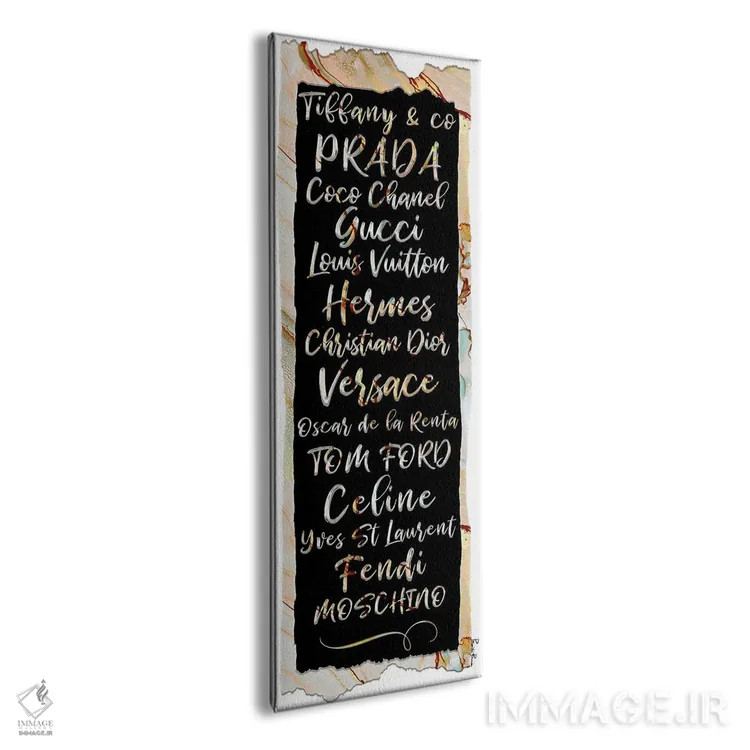 Tiffany & co
PRADA
Coco Chanel
Gucci
Louis Vuitton
Hermes
Christian Dior
Versace
Oscar de la Renta
TOM FORD
Celine
Yves St Laurent
Fendi
MOSCHINO
IMMAGE
IMMAGE.IR
IMMAGE.IR